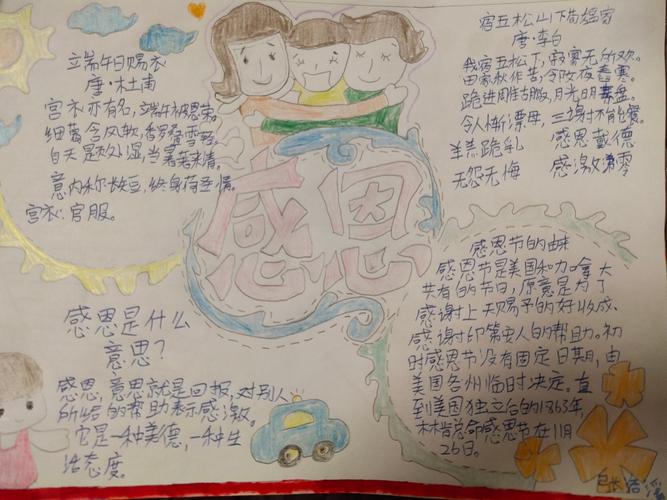 立端午日赐衣
唐·杜甫
宫衣亦有名,端午被恩荣。
细葛含风软,香罗叠雪轻。
自天题处湿,当暑著来清。
意内称长短,终身荷圣情。
宫衣:官服。
感恩是什么
意思?
感恩,意思就是回报,对别人
所给的帮助表示感激。
它是一种美德,一种生
活态度。
感恩
宿五松山下荀媪家
唐·李白
我宿五松下,寂寥无所欢。
田家秋作苦,邻女夜舂寒。
跪进雕胡饭,月光明素盘。
令人惭漂母,三谢不能餐。
羊羔跪乳 感恩戴德
无怨无悔 感激涕零
感恩节的由来
感恩节是美国和加拿大
共有的节日,原意是为了
感谢上天赐予的好收成、
感谢印第安人的帮助。初
时感恩节没有固定日期,由
美国各州临时决定。直
到美国独立后的1863年,
林肯总命感恩节在11月
26日。